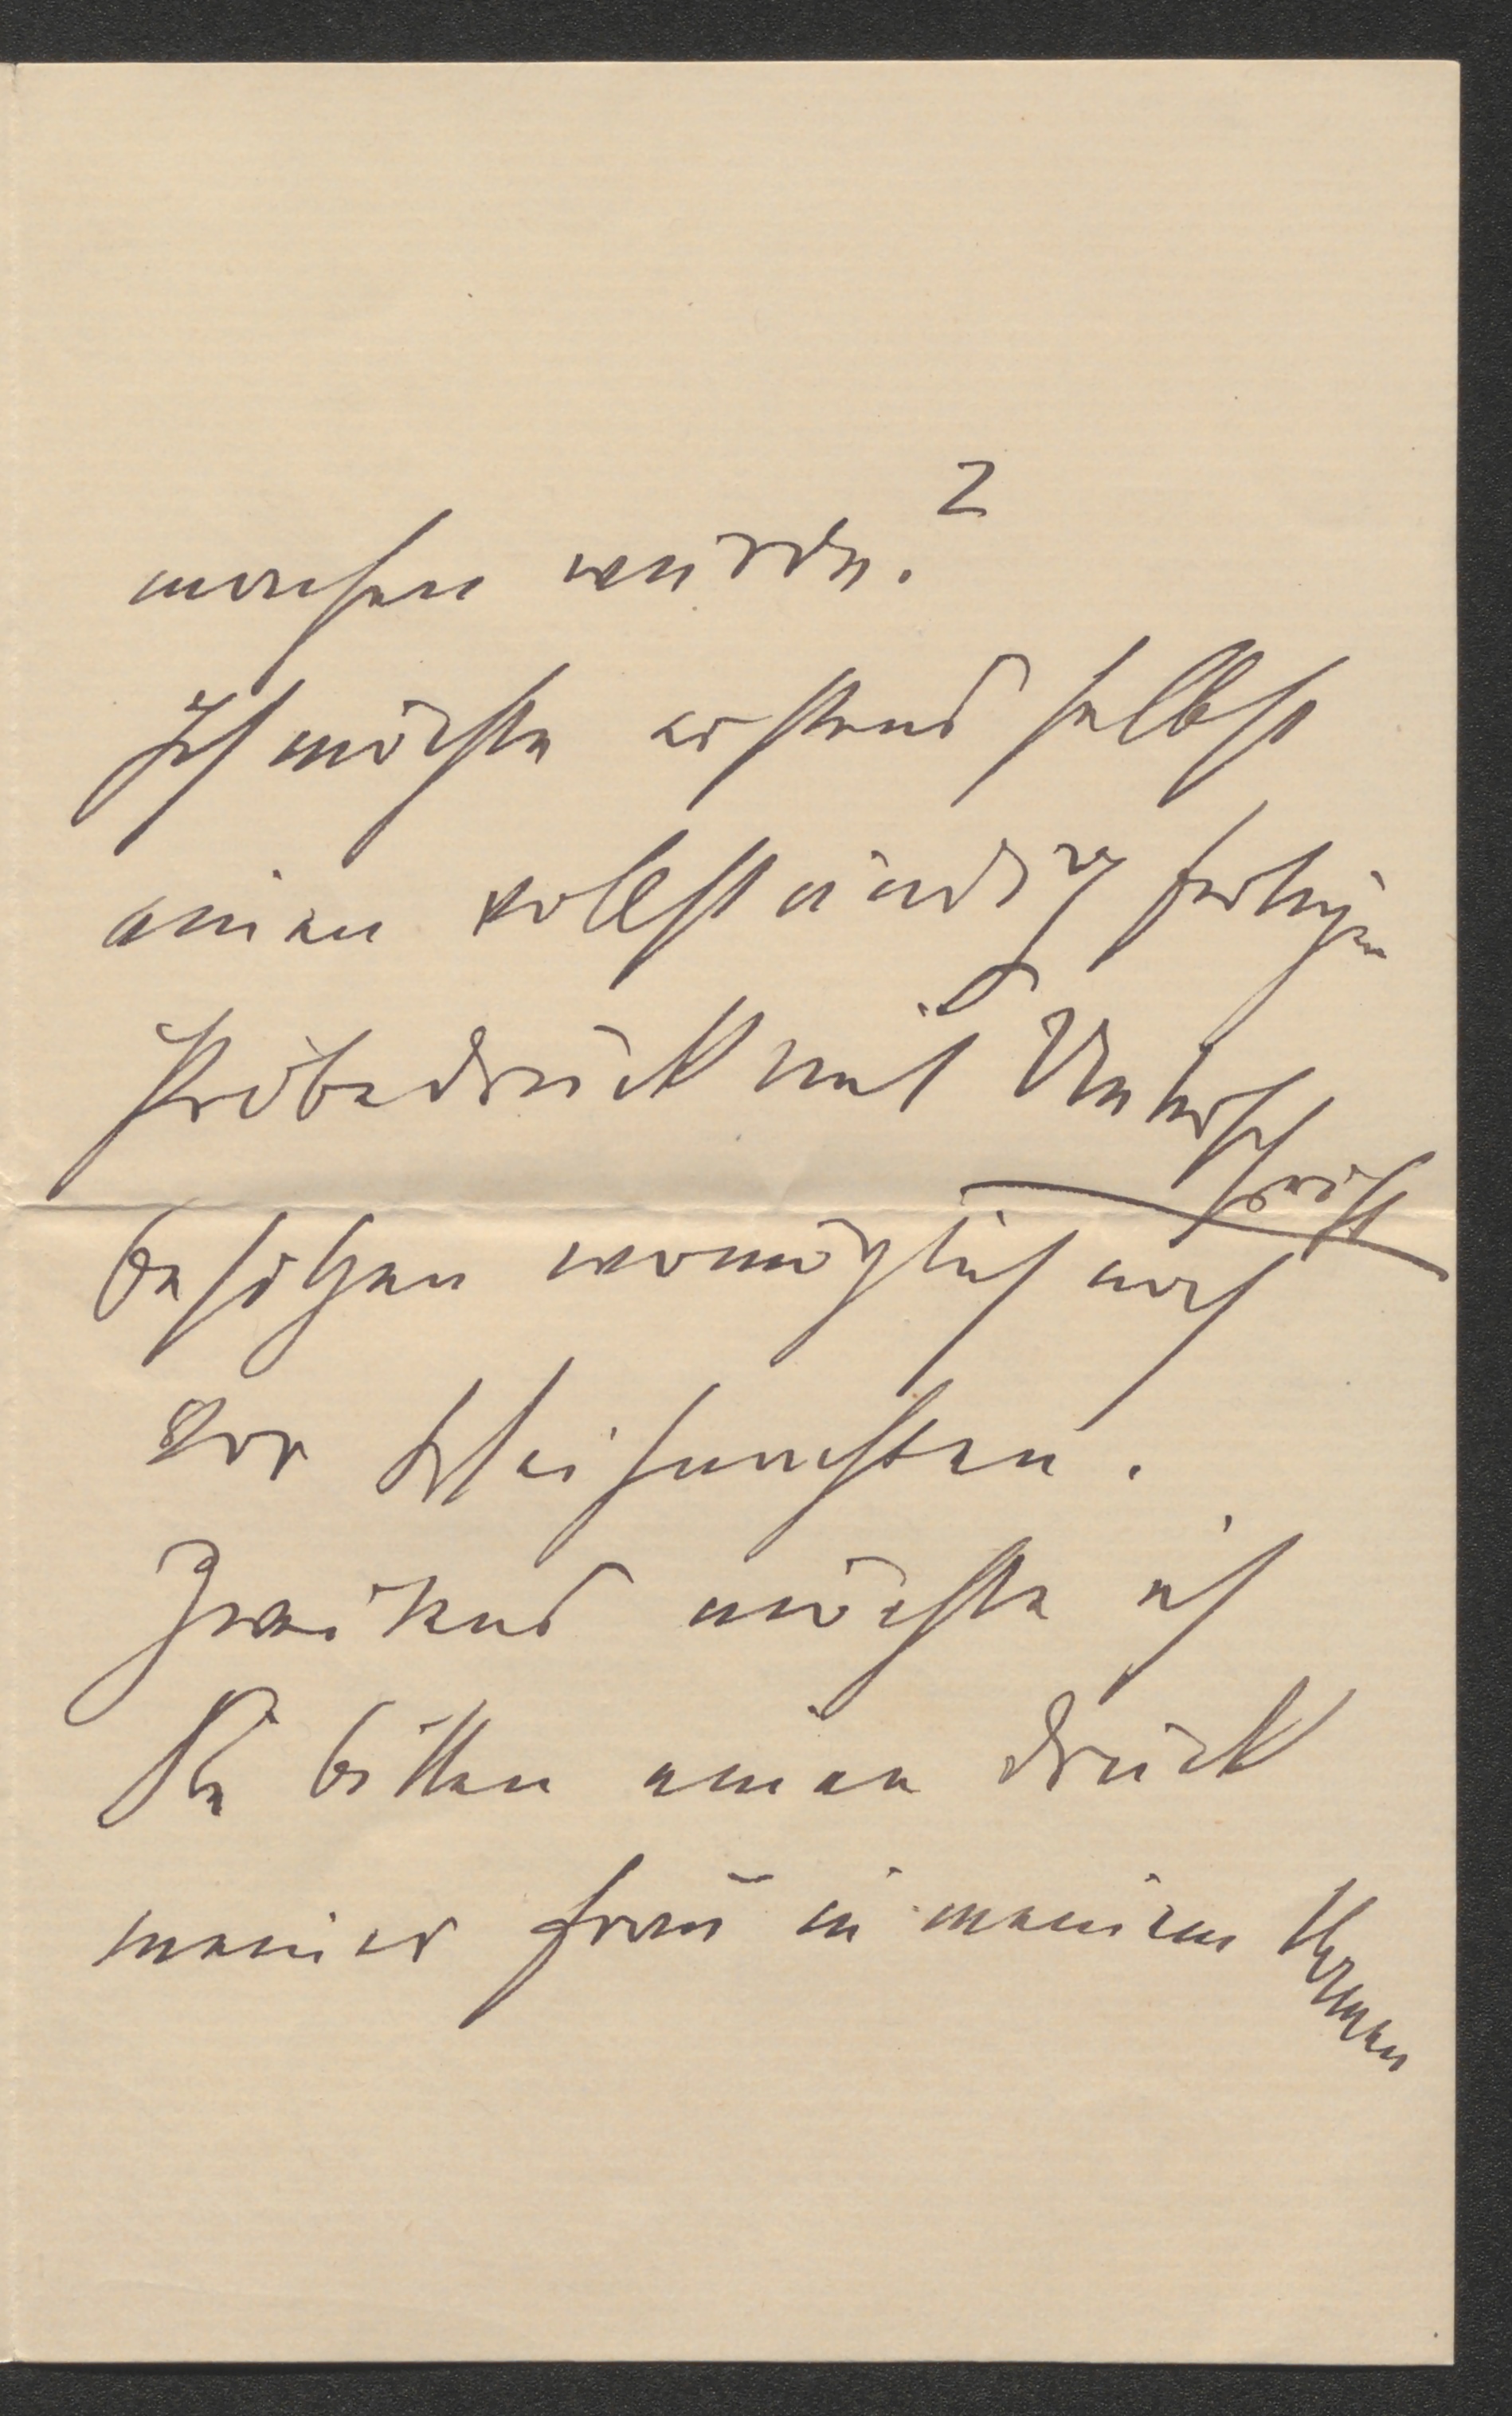 machen würde.
2
Ich möchte erstens selbst
einen vollständig fertigen
Probedruck mit Unterschrift
besitzen womöglich noch
vor Weihnachten.
Zweitens möchte ich
Sie bitten einen Druck
meiner Frau in meinem Namen